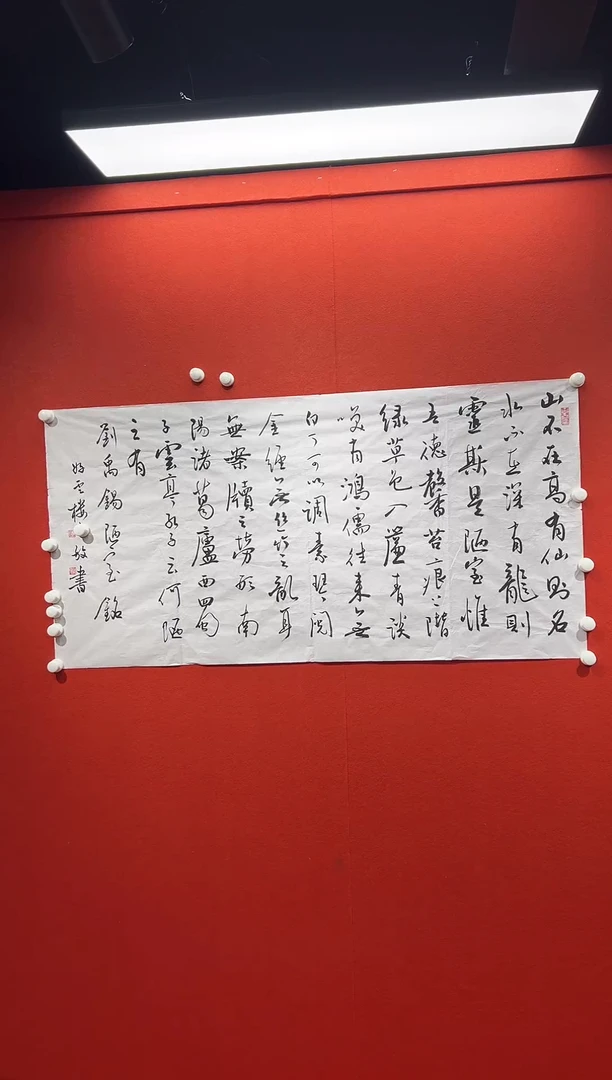 山不在高有仙則名
水不在深有龍則
靈斯是陋室惟
吾德馨苔痕上階
綠草色入簾青談
笑有鴻儒往來無
白丁可以調素琴閱
金經無絲竹之亂耳
無案牘之勞形南
陽諸葛廬西蜀
子雲亭孔子云何陋
之有
劉禹錫陋室銘
樓 敏書